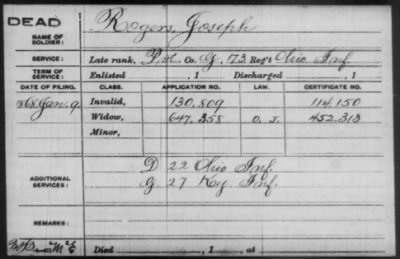 DEAD
NAME OF SOLDIER: Rogers, Joseph
SERVICE: Late rank, Pvt. Co. G, 173 Reg't Ohio Inf.
TERM OF SERVICE: Enlisted , 1 Discharged , 1
DATE OF FILING. CLASS. APPLICATION NO. LAW. CERTIFICATE NO.
1868 Jan. 9 Invalid, 130,809 114,150
Widow, 647,258 O. S. 452,313
Minor,
ADDITIONAL SERVICES: D 22 Ohio Inf.
G. 27 Ky. Inf.
REMARKS:
Died , 1 , at